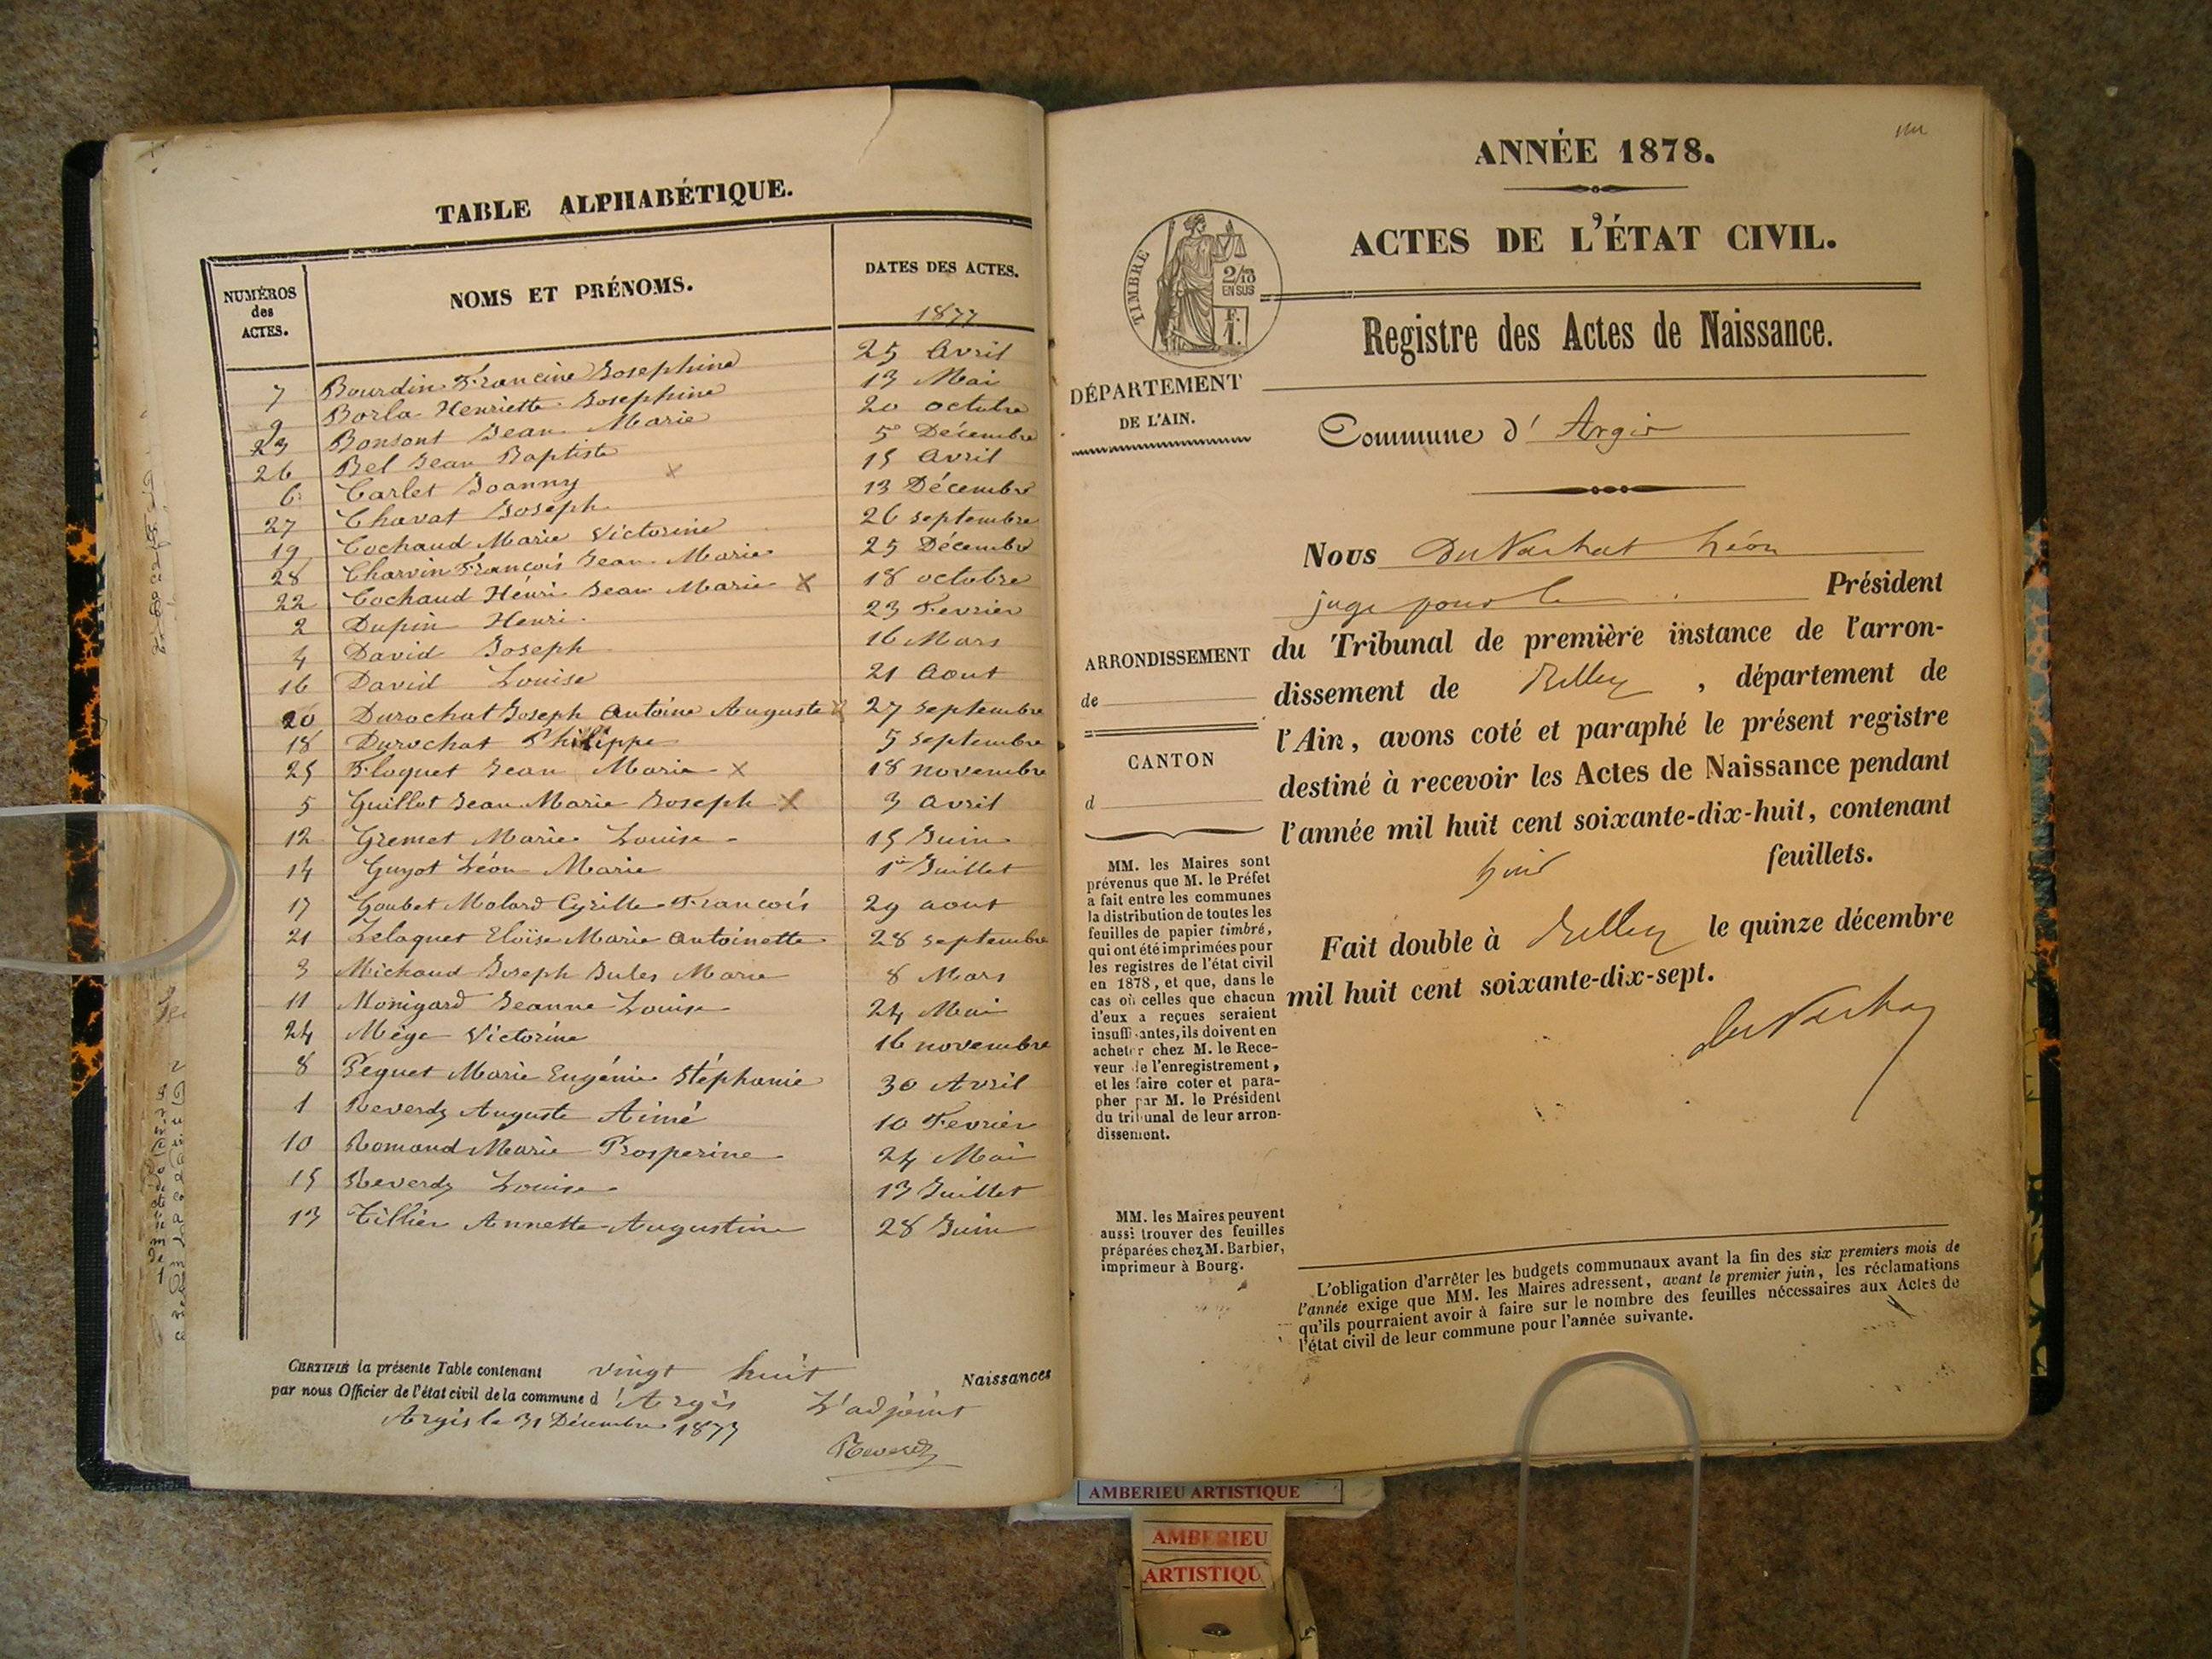 TABLE ALPHABÉTIQUE.
NUMÉROS des ACTES.
NOMS ET PRÉNOMS.
DATES DES ACTES.
1877
7 Bourdin Francine Josephine 25 Avril
9 Borla Henriette Josephine 13 Mai
23 Bonsont Jean Marie 20 octobre
26 Bel Jean Baptiste 5 Décembre
6 Carlet Joanny x 15 Avril
27 Chavat Joseph 13 Décembre
19 Cochaud Marie Victorine 26 septembre
28 Charvin François Jean Marie 25 Décembre
22 Cochaud Henri Jean Marie x 18 octobre
2 Dupin Henri 23 Fevrier
4 David Joseph 16 Mars
16 David Louise 21 Aout
20 Durochat Joseph Antoine Auguste x 27 septembre
18 Durochat Philippe 5 septembre
25 Floquet Jean Marie x 18 novembre
5 Guillot Jean Marie Joseph x 3 avril
12 Gremet Marie Louise 15 Juin
14 Guyot Léon Marie 1er Juillet
17 Goubet Molard Cyrille François 29 aout
21 Lelaquet Eloïse Marie Antoinette 28 septembre
3 Michaud Joseph Jules Marie 8 Mars
11 Monigard Jeanne Louise 24 Mai
24 Mège Victorine 16 novembre
8 Peguet Marie Eugénie Stéphanie 30 Avril
1 Reverdy Auguste Aimé 10 Fevrier
10 Romand Marie Prosperine 24 Mai
15 Reverdy Louise 13 Juillet
13 Tillier Annette Augustine 28 Juin
CERTIFIÉ la présente Table contenant vingt huit Naissances
par nous Officier de l'état civil de la commune d'Argis L'adjoint
Argis le 31 Décembre 1877
Reverdy
ANNÉE 1878.
ACTES DE L'ÉTAT CIVIL.
TIMBRE
2/10
EN SUS
F.
1.
Registre des Actes de Naissance.
DÉPARTEMENT
DE L'AIN.
Commune d' Argis
Nous Du Vachat Léon
juge pour le Président
ARRONDISSEMENT
de
CANTON
d
du Tribunal de première instance de l'arron-
dissement de Belley, département de
l'Ain, avons coté et paraphé le présent registre
destiné à recevoir les Actes de Naissance pendant
l'année mil huit cent soixante-dix-huit, contenant
feuillets.
Fait double à Belley le quinze décembre
mil huit cent soixante-dix-sept.
du Vachat
MM. les Maires sont
prévenus que M. le Préfet
a fait entre les communes
la distribution de toutes les
feuilles de papier timbré,
qui ont été imprimées pour
les registres de l'état civil
en 1878, et que, dans le
cas où celles que chacun
d'eux a reçues seraient
insuffisantes, ils doivent en
acheter chez M. le Rece-
veur de l'enregistrement,
et les faire coter et para-
pher par M. le Président
du tribunal de leur arron-
dissement.
MM. les Maires peuvent
aussi trouver des feuilles
préparées chez M. Barbier,
imprimeur à Bourg.
L'obligation d'arrêter les budgets communaux avant la fin des six premiers mois de
l'année exige que MM. les Maires adressent, avant le premier juin, les réclamations
qu'ils pourraient avoir à faire sur le nombre des feuilles nécessaires aux Actes de
l'état civil de leur commune pour l'année suivante.
AMBERIEU ARTISTIQUE
AMBERIEU
ARTISTIQU